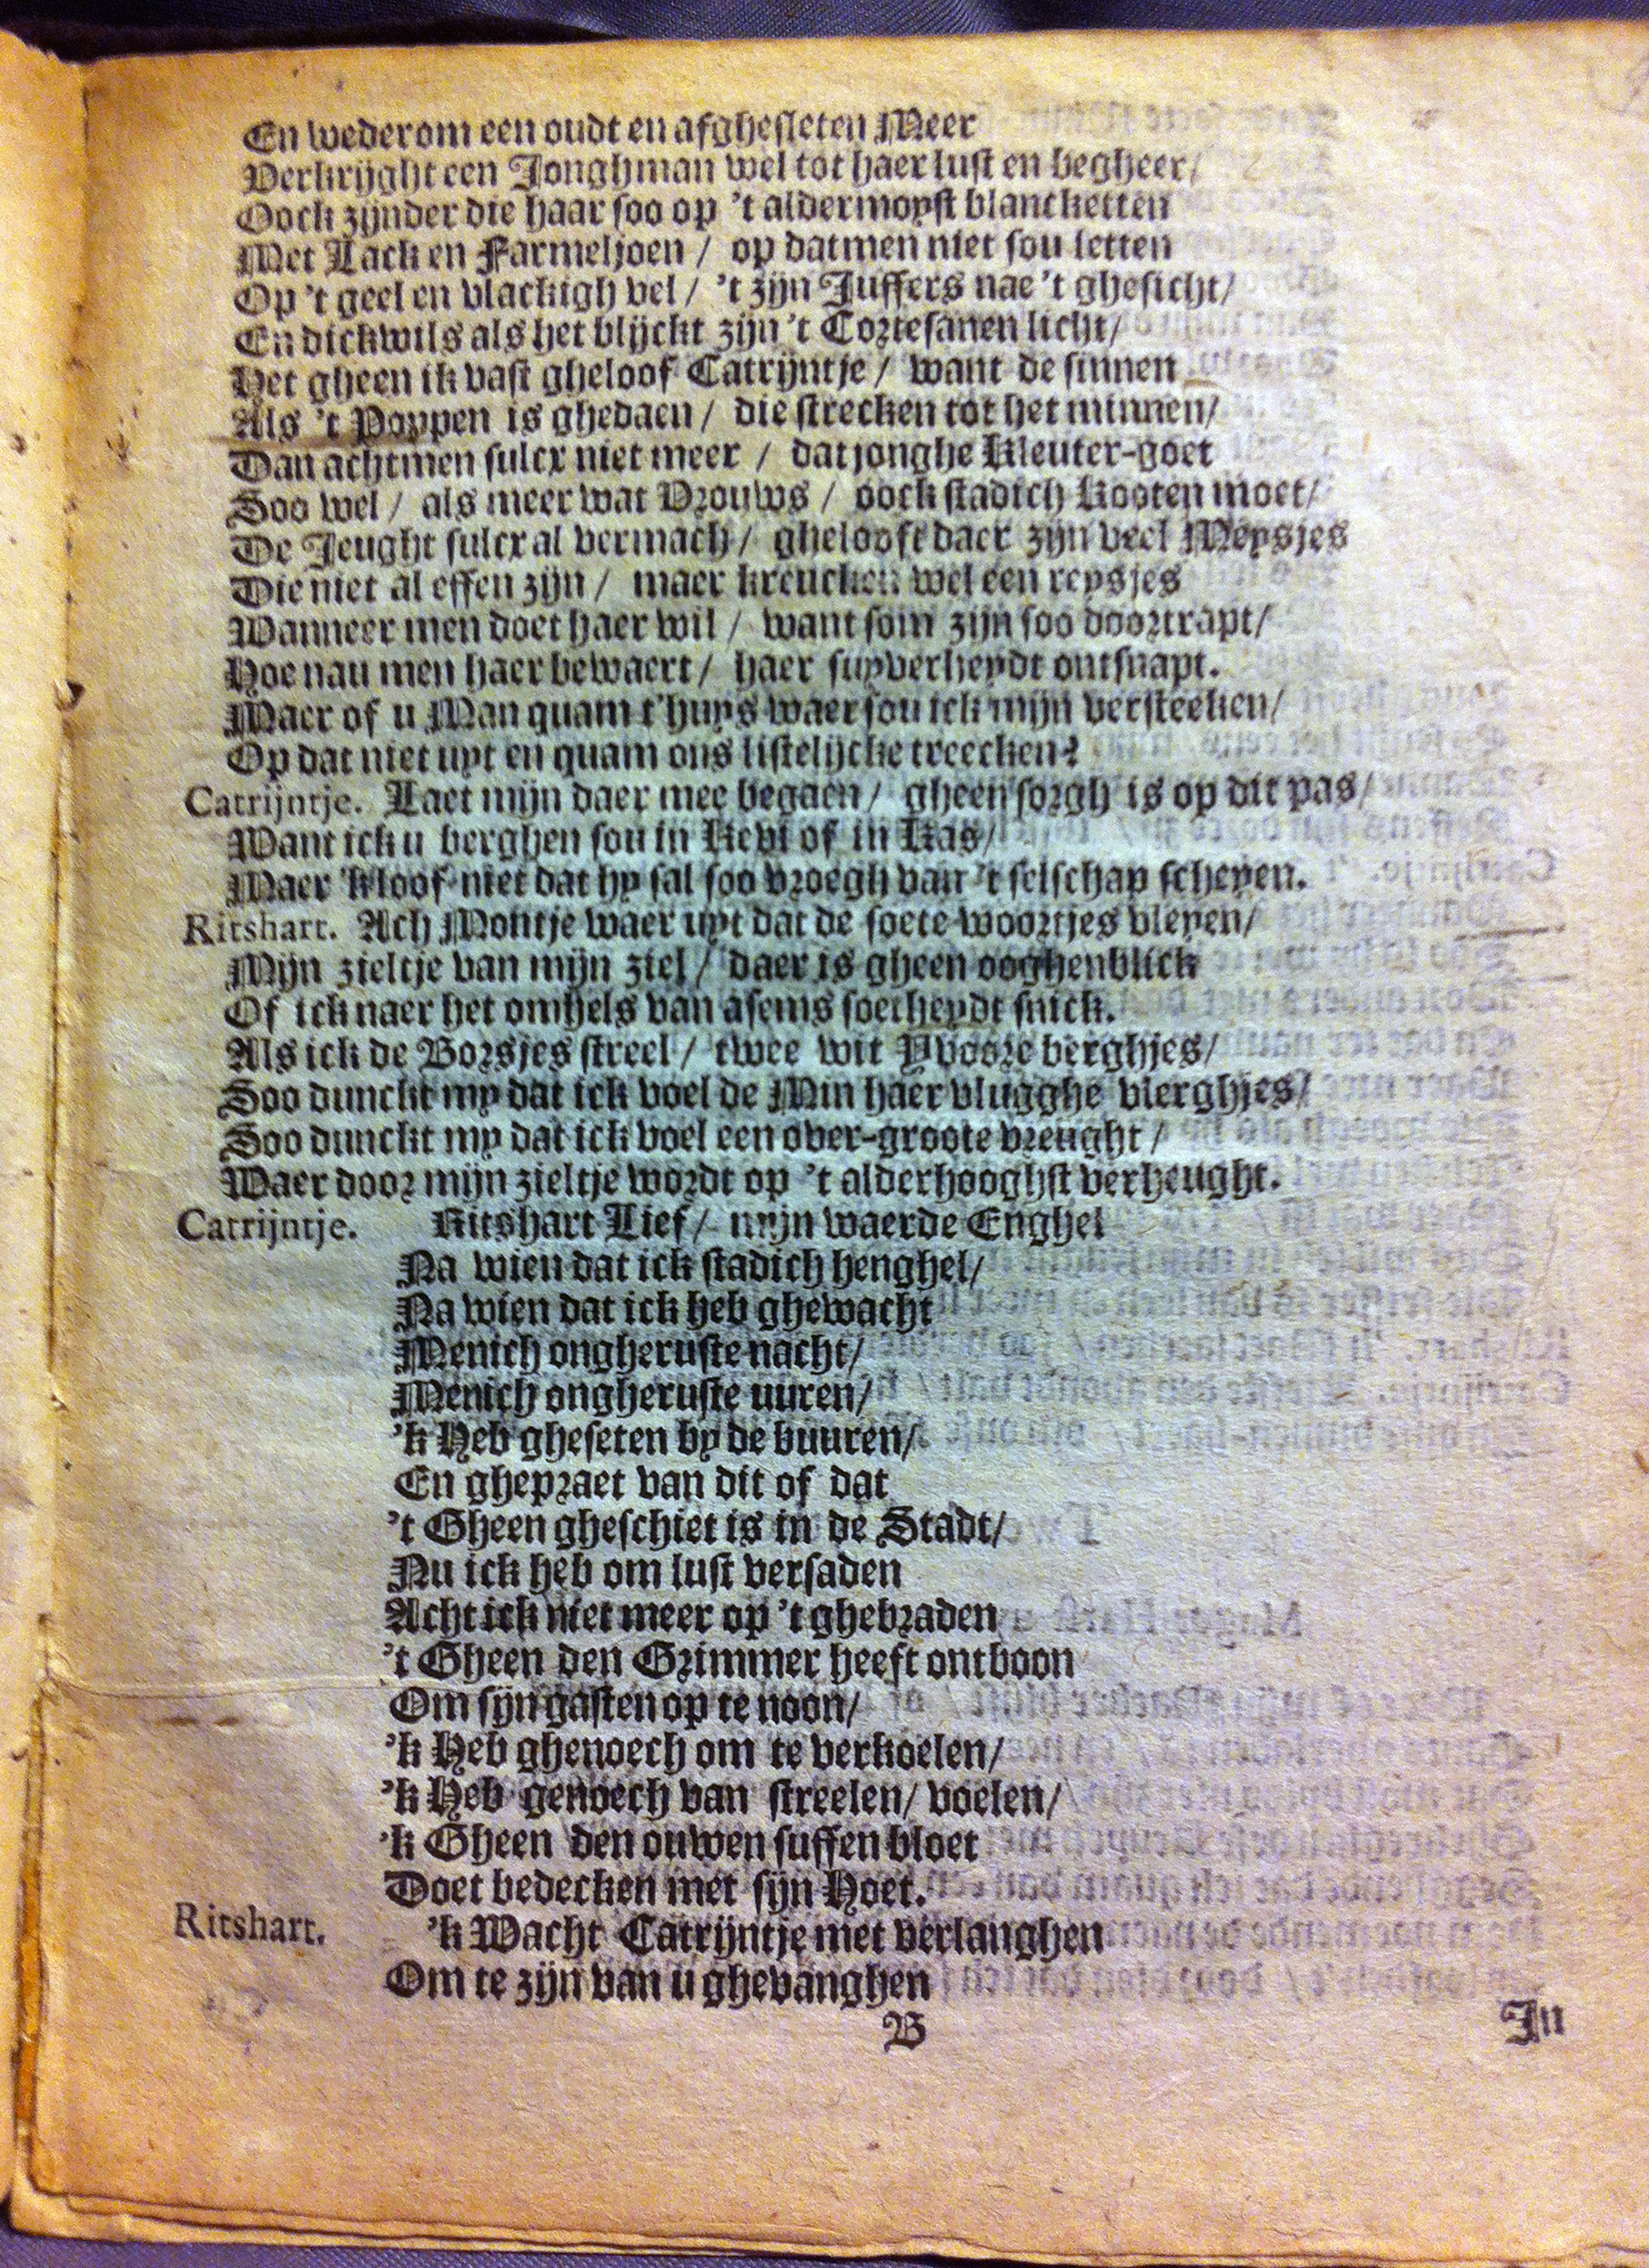 En wederom een oudt en afghesleten Meer
Verkrijght een Jonghman wel tot haer lust en begheer/
Oock zijnder die haar soo op 't aldermoyst blancketten
Met Lack en Farmeljoen / op datmen niet sou letten
Op 't geel en vlackigh vel / 't zijn Juffers nae 't ghesicht/
En dickwils als het blijckt zijn 't Cortesanen licht/
Het gheen ik vast gheloof Catrijntje / want de sinnen
Als 't Poppen is ghedaen / die strecken tot het minnen/
Dan achtmen sulcx niet meer / dat jonghe Kleuter-goet
Soo wel / als meer wat Vrouws / oock stadich Kooten moet/
De Jeught sulcx al vermach / ghelooft daer zijn veel Meysjes
Die niet al effen zijn / maer kreucken wel een reysjes
Wanneer men doet haer wil / want som zijn soo doortrapt/
Hoe nau men haer bewaert / haer suyverheydt ontsnapt.
Maer of u Man quam t'huys waer sou ick mijn versteeken/
Op dat niet uyt en quam ons listelijcke treecken?
Catrijntje. Laet mijn daer mee begaen / gheen sorgh is op dit pas/
Want ick u berghen sou in Keut of in Kas/
Maer 'k loof niet dat hy sal soo vroegh van 't selschap scheyen.
Ritshart. Ach Montje waer uyt dat de soete woortjes vleyen/
Mijn zieltje van mijn ziel / daer is gheen ooghenblick
Of ick naer het omhels van asems soetheydt snick.
Als ick de Borsjes streel / twee wit Yvoore berghjes/
Soo dunckt my dat ick voel de Min haer vlugghe vlerghjes/
Soo dunckt my dat ick voel een over-groote vreught /
Waer door mijn zieltje wordt op 't alderhooghst verheught.
Catrijntje. Ritshart Lief / mijn waerde Enghel
Na wien dat ick stadich henghel/
Na wien dat ick heb ghewacht
Menich ongheruste nacht/
Menich ongheruste uuren/
'k Heb gheseten by de buuren/
En ghepraet van dit of dat
't Gheen gheschiet is in de Stadt/
Nu ick heb om lust versaden
Acht ick niet meer op 't ghebraden
't Gheen den Grimmer heeft ontboon
Om sijn gasten op te noon/
'k Heb ghenoech om te verkoelen/
'k Heb genoech van streelen/ voelen/
'k Gheen den ouwen suffen bloet
Doet bedecken met sijn Hoet.
Ritshart. 'k Wacht Catrijntje met verlanghen
Om te zijn van u ghevanghen
B
In